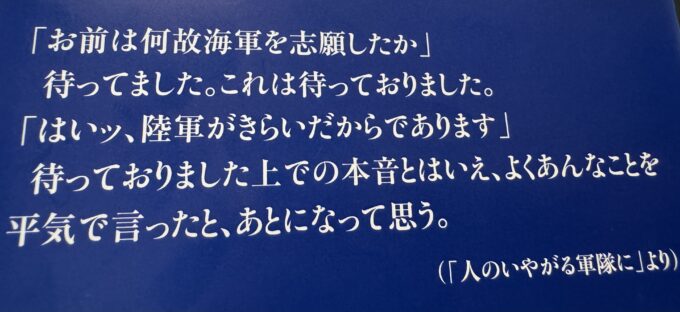 「お前は何故海軍を志願したか」
待ってました。これは待っておりました。
「はいッ、陸軍がきらいだからであります」
待っておりました上での本音とはいえ、よくあんなことを
平気で言ったと、あとになって思う。
(「人のいやがる軍隊に」より)